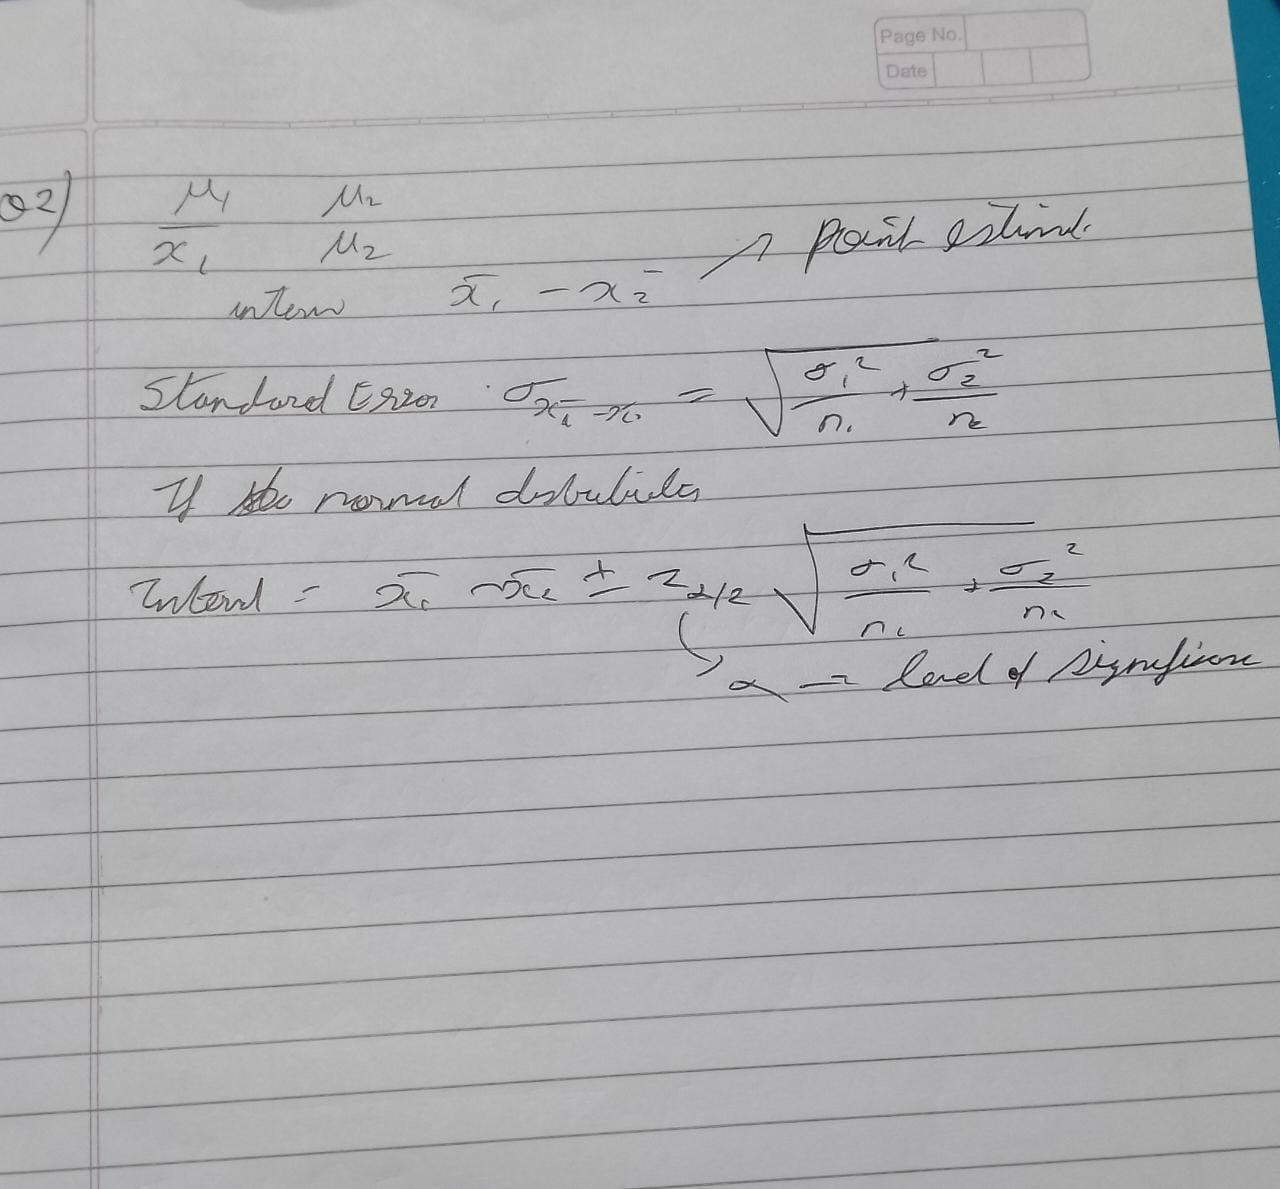 Page No.
Date
Q2) μ₁ μ₂
x̄₁ μ₂
x̄₁ - x̄₂ → point estimate
Standard Error σx̄₁-x̄₂ = √(σ₁²/n₁ + σ₂²/n₂)
If normal
Interval = x̄₁ - x̄₂ ± Zα/2 √(σ₁²/n₁ + σ₂²/n₂)
α → level of significance